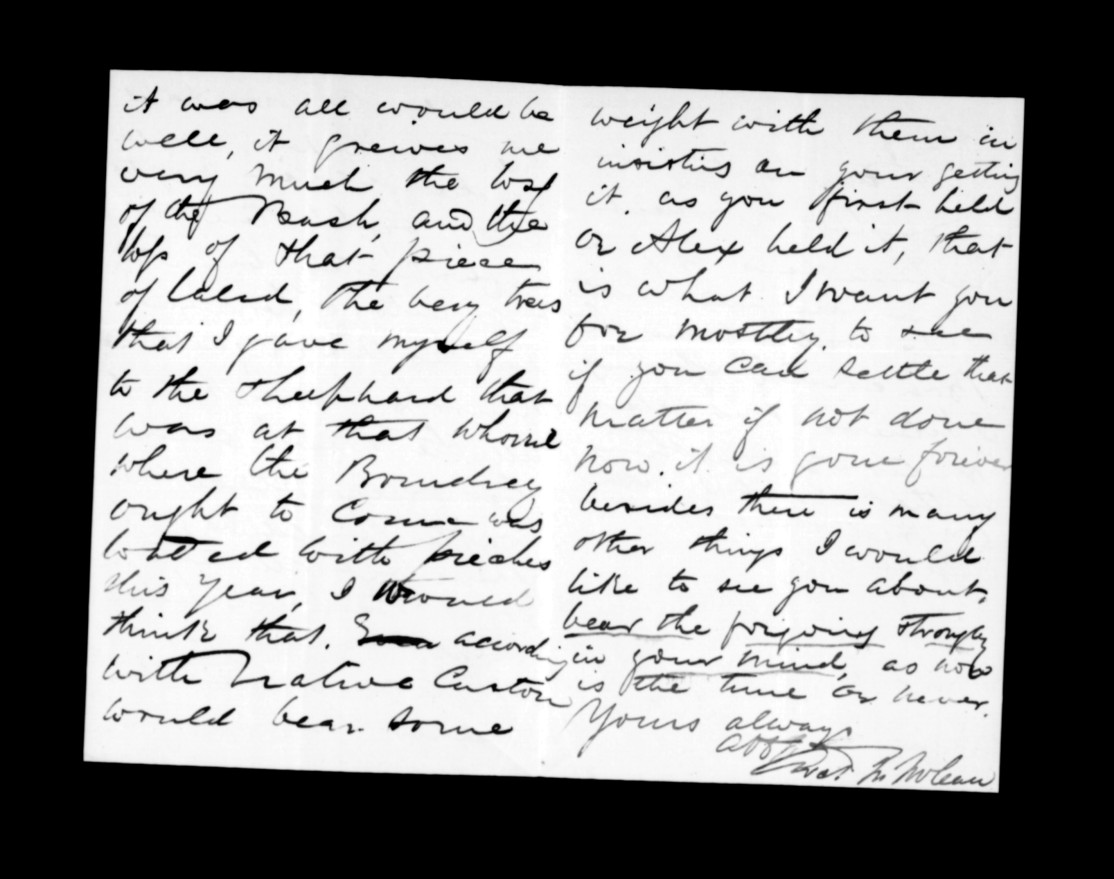 it was all would be
well, it greives me
very much the loss
of the Bush, and the
loss of that piece
of land, the very trees
that I gave myself
to the shephard that
was at that whorie
where the Boundrey
ought to come was
loaded with pieches
this year, I would
think that. according
with Native Custom
would bear some
weight with them in
insisting on your getting
it. as you first held
or Alex held it, that
is what I want you
for mostley to see
if you can settle that
matter if not done
now. it is gone forever
besides there is many
other things I would
like to see you about,
bear the forgoing strongly
in your mind, as now
is the time or never.
Yours always
McLean